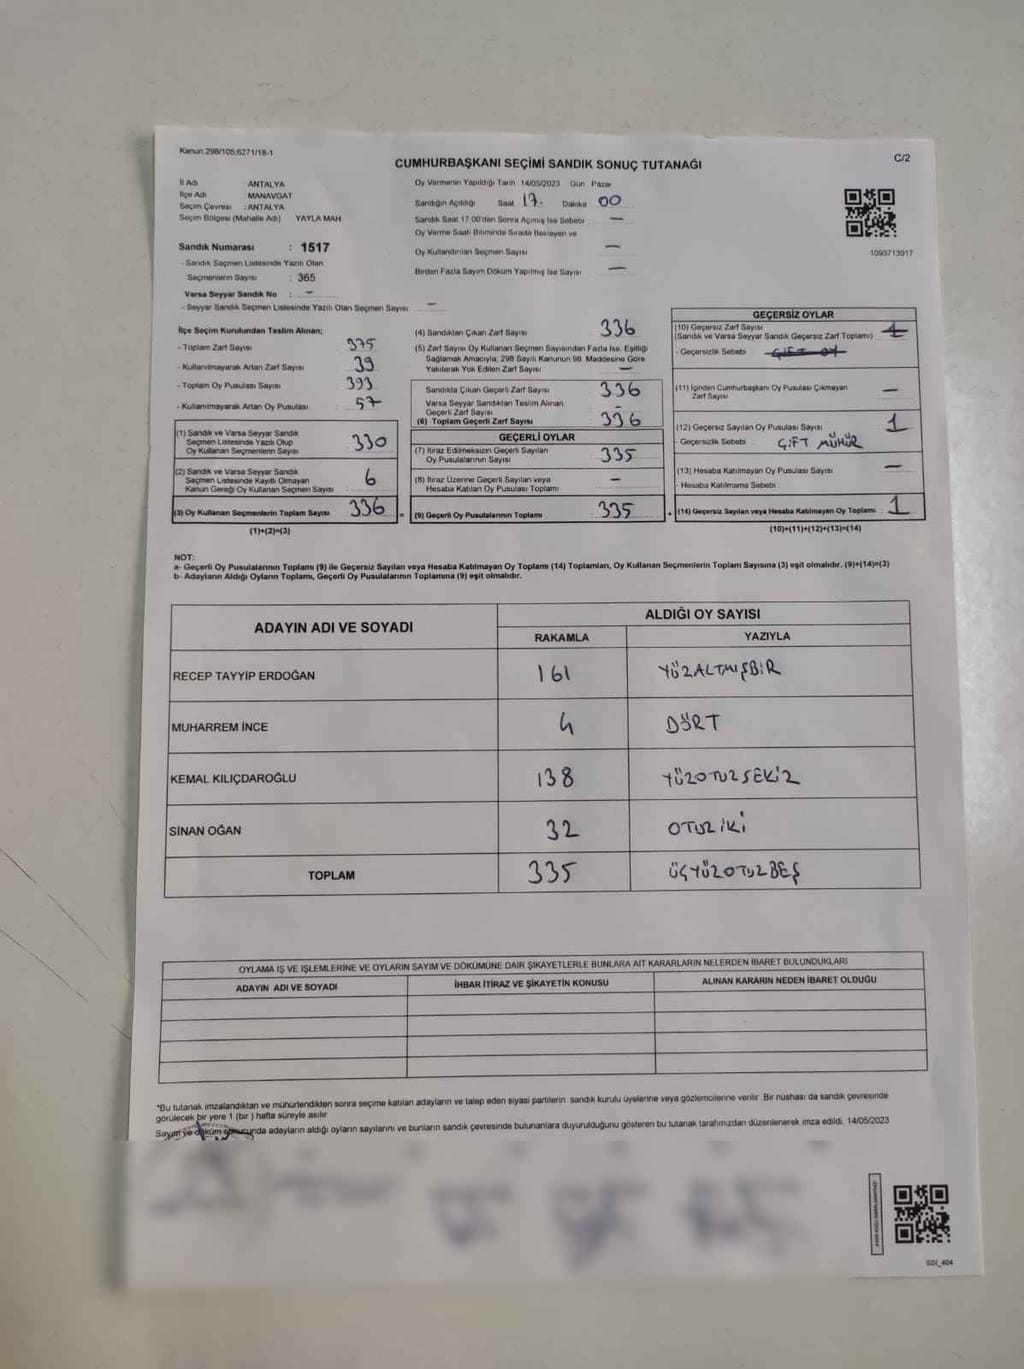 Kanun:298/105,6271/18-1
CUMHURBAŞKANI SEÇİMİ SANDIK SONUÇ TUTANAĞI
C/2
İl Adı ANTALYA
İlçe Adı MANAVGAT
Seçim Çevresi : ANTALYA
Seçim Bölgesi (Mahalle Adı) YAYLA MAH
Sandık Numarası : 1517
- Sandık Seçmen Listesinde Yazılı Olan
Seçmenlerin Sayısı : 365
Varsa Seyyar Sandık No : -
- Seyyar Sandık Seçmen Listesinde Yazılı Olan Seçmen Sayısı -
Oy Vermenin Yapıldığı Tarih 14/05/2023 Gün Pazar
Sandığın Açıldığı Saat 17 Dakika 00
Sandık Saat 17.00'den Sonra Açılmış İse Sebebi : -
Oy Verme Saati Bitiminde Sırada Bekleyen ve
Oy Kullandırılan Seçmen Sayısı -
Birden Fazla Sayım Döküm Yapılmış İse Sayısı -
1093713917
İlçe Seçim Kurulundan Teslim Alınan;
- Toplam Zarf Sayısı 375
- Kullanılmayarak Artan Zarf Sayısı 39
- Toplam Oy Pusulası Sayısı 393
- Kullanılmayarak Artan Oy Pusulası 57
(1) Sandık ve Varsa Seyyar Sandık
Seçmen Listesinde Yazılı Olup
Oy Kullanan Seçmenlerin Sayısı 330
(2) Sandık ve Varsa Seyyar Sandık
Seçmen Listesinde Kayıtlı Olmayan
Kanun Gereği Oy Kullanan Seçmen Sayısı 6
(3) Oy Kullanan Seçmenlerin Toplam Sayısı 336
(1)+(2)=(3)
(4) Sandıktan Çıkan Zarf Sayısı 336
(5) Zarf Sayısı Oy Kullanan Seçmen Sayısından Fazla İse, Eşitliği
Sağlamak Amacıyla, 298 Sayılı Kanunun 98. Maddesine Göre
Yakılarak Yok Edilen Zarf Sayısı -
Sandıkta Çıkan Geçerli Zarf Sayısı 336
Varsa Seyyar Sandıktan Teslim Alınan
Geçerli Zarf Sayısı -
(6) Toplam Geçerli Zarf Sayısı 336
GEÇERLİ OYLAR
(7) İtiraz Edilmeksizin Geçerli Sayılan
Oy Pusulalarının Sayısı 335
(8) İtiraz Üzerine Geçerli Sayılan veya
Hesaba Katılan Oy Pusulası Toplamı -
(9) Geçerli Oy Pusulalarının Toplamı : 335
GEÇERSİZ OYLAR
(10) Geçersiz Zarf Sayısı
(Sandık ve Varsa Seyyar Sandık Geçersiz Zarf Toplamı) : 1
- Geçersizlik Sebebi ÇİFT OY
(11) İçinden Cumhurbaşkanı Oy Pusulası Çıkmayan
Zarf Sayısı -
(12) Geçersiz Sayılan Oy Pusulası Sayısı 1
- Geçersizlik Sebebi ÇİFT MÜHÜR
(13) Hesaba Katılmayan Oy Pusulası Sayısı -
- Hesaba Katılmama Sebebi :
(14) Geçersiz Sayılan veya Hesaba Katılmayan Oy Toplamı : 1
(10)+(11)+(12)+(13)=(14)
NOT:
a- Geçerli Oy Pusulalarının Toplamı (9) ile Geçersiz Sayılan veya Hesaba Katılmayan Oy Toplamı (14) Toplamları, Oy Kullanan Seçmenlerin Toplam Sayısına (3) eşit olmalıdır. (9)+(14)=(3)
b- Adayların Aldığı Oyların Toplamı, Geçerli Oy Pusulalarının Toplamına (9) eşit olmalıdır.
ADAYIN ADI VE SOYADI
ALDIĞI OY SAYISI
RAKAMLA YAZIYLA
RECEP TAYYİP ERDOĞAN 161 YÜZALTMIŞBİR
MUHARREM İNCE 4 DÖRT
KEMAL KILIÇDAROĞLU 138 YÜZOTUZSEKİZ
SİNAN OĞAN 32 OTUZİKİ
TOPLAM 335 ÜÇYÜZOTUZBEŞ
OYLAMA İŞ VE İŞLEMLERİNE VE OYLARIN SAYIM VE DÖKÜMÜNE DAİR ŞİKAYETLERLE BUNLARA AİT KARARLARIN NELERDEN İBARET BULUNDUKLARI
ADAYIN ADI VE SOYADI İHBAR İTİRAZ VE ŞİKAYETİN KONUSU ALINAN KARARIN NEDEN İBARET OLDUĞU
*Bu tutanak imzalandıktan ve mühürlendikten sonra seçime katılan adayların ve talep eden siyasi partilerin sandık kurulu üyelerine veya gözlemcilerine verilir. Bir nüshası da sandık çevresinde
görülecek bir yere 1 (bir ) hafta süreyle asılır.
Sayım ve döküm sonucunda adayların aldığı oyların sayılarını ve bunların sandık çevresinde bulunanlara duyurulduğunu gösteren bu tutanak tarafımızdan düzenlenerek imza edildi. 14/05/2023